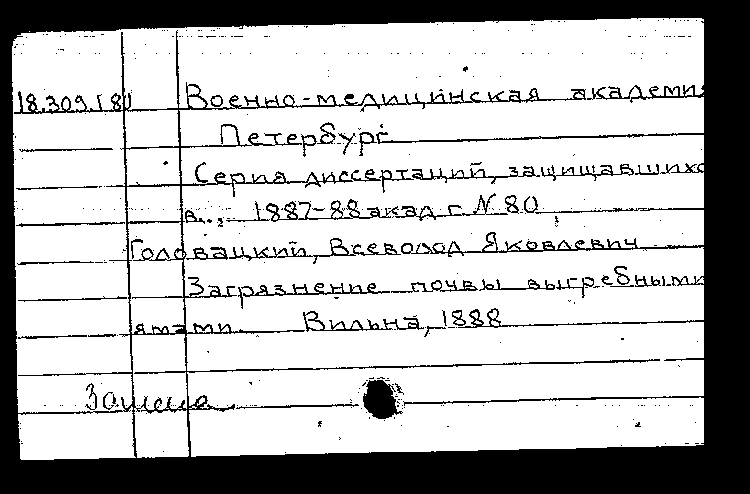 18.309.I 80 Военно-медицинская академия
Петербург
Серия диссертаций, защищавшихс
в..., 1887-88 акад. г. N 80
Головацкий, Всеволод Яковлевич
Загрязнение почвы выгребными
ямами. Вильна, 1888
Замена